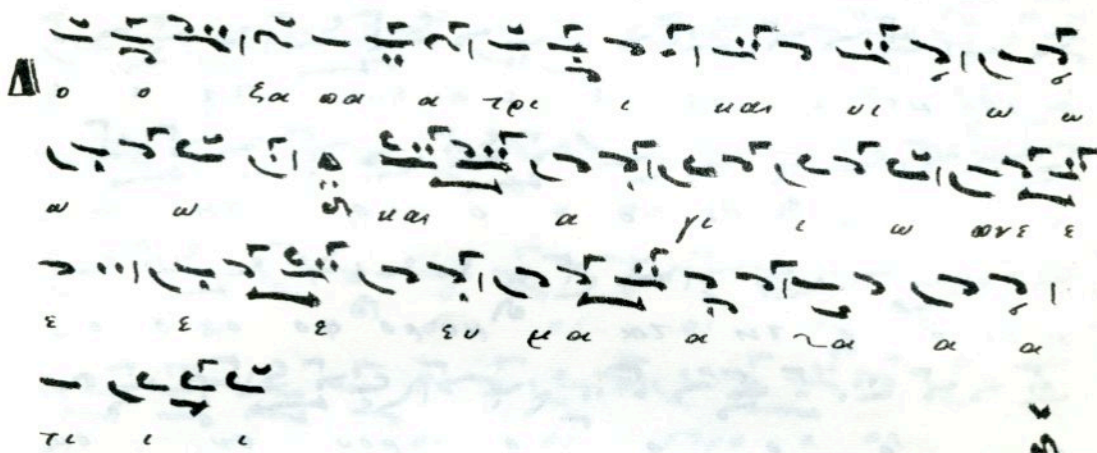 Δ ο ο ξα πα α τρι ι και υι ω ω
ω ω και α γι ι ω πνε ε
ε ε ε ευ μα α τα α α
τι ι ι